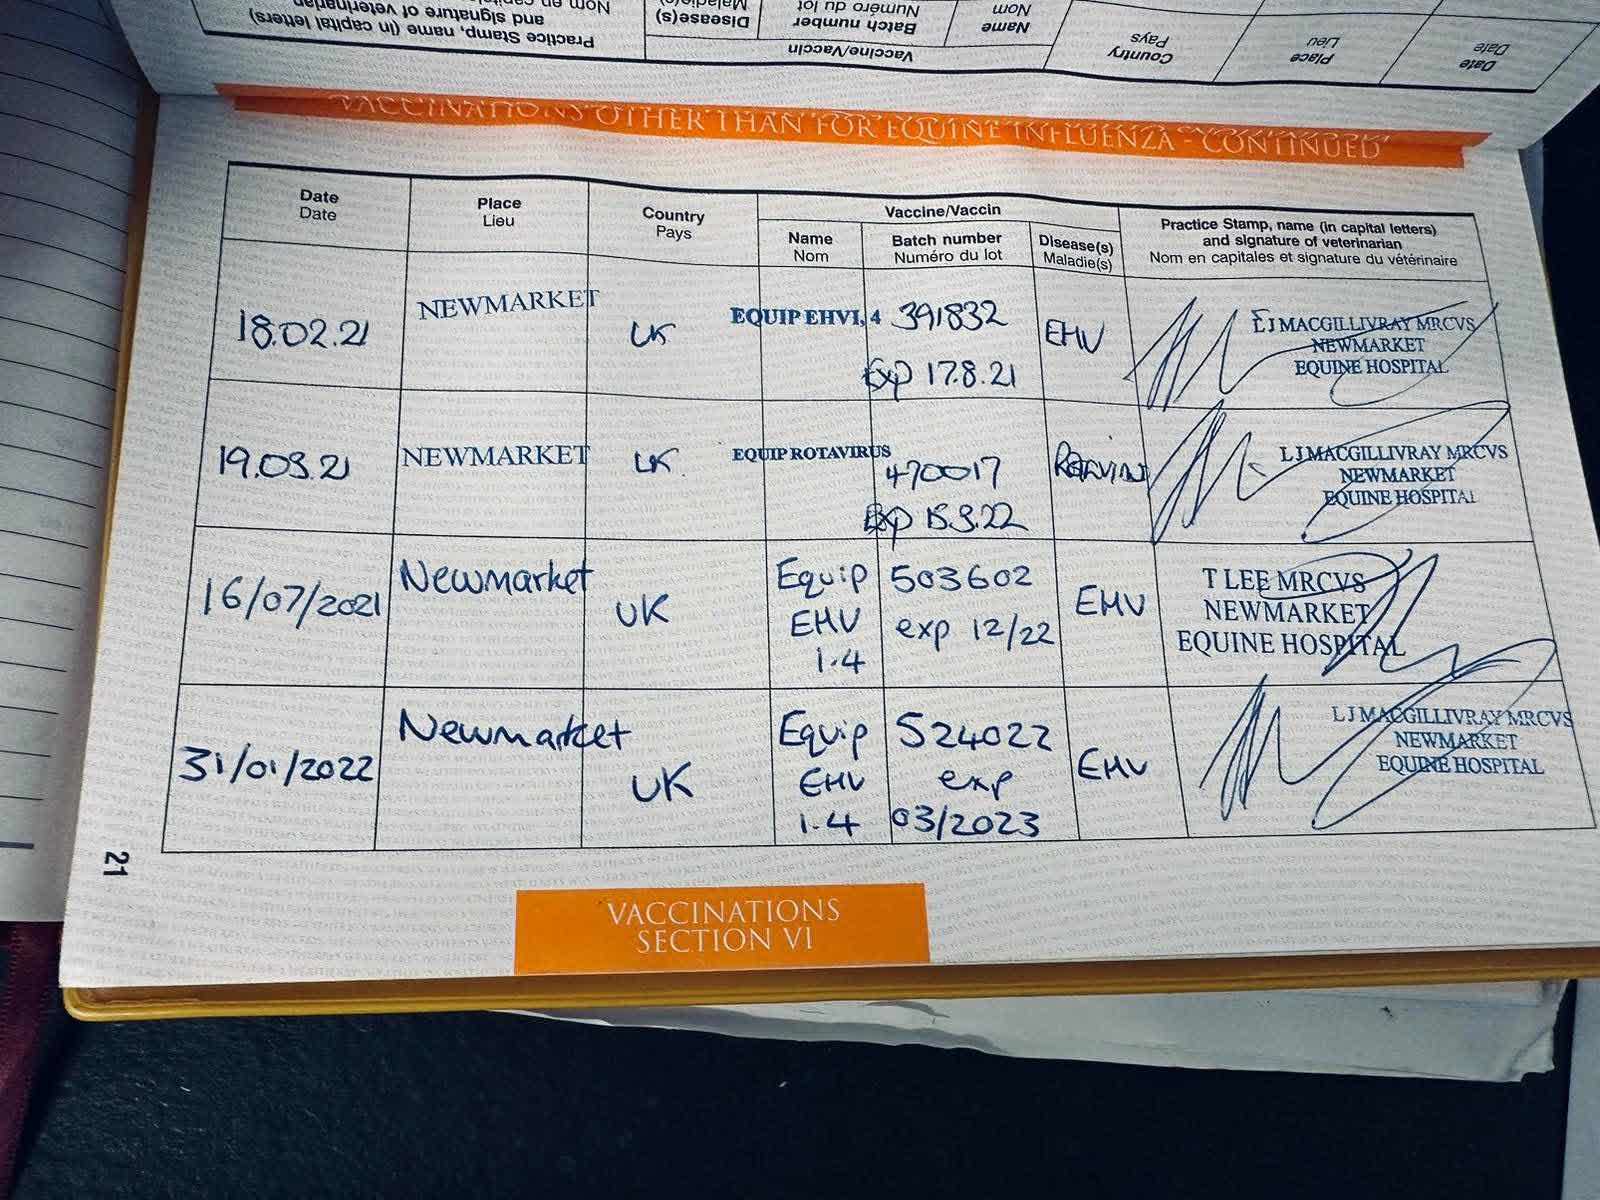 Practice Stamp, name (in capital letters)
and signature of veterinarian
Vaccine/Vaccin
Name
Nom
Batch number
Numéro du lot
Disease(s)
Country
Pays
Place
Lieu
Date
Date
VACCINATIONS OTHER THAN FOR EQUINE INFLUENZA - CONTINUED
Date
Date
Place
Lieu
Country
Pays
Vaccine/Vaccin
Name
Nom
Batch number
Numéro du lot
Disease(s)
Maladie(s)
Practice Stamp, name (in capital letters)
and signature of veterinarian
Nom en capitales et signature du vétérinaire
18.02.21
NEWMARKET
UK
EQUIP EHV1, 4
391832
Exp 17.8.21
EHV
LJ MACGILLIVRAY MRCVS
NEWMARKET
EQUINE HOSPITAL
19.03.21
NEWMARKET
UK
EQUIP ROTAVIRUS
470017
Exp 15.3.22
LJ MACGILLIVRAY MRCVS
NEWMARKET
EQUINE HOSPITAL
16/07/2021
Newmarket
UK
Equip
EHV
1.4
503602
exp 12/22
EHV
T LEE MRCVS
NEWMARKET
EQUINE HOSPITAL
31/01/2022
Newmarket
UK
Equip
EHV
1.4
524022
exp
03/2023
EHV
LJ MACGILLIVRAY MRCVS
NEWMARKET
EQUINE HOSPITAL
21
VACCINATIONS
SECTION VI